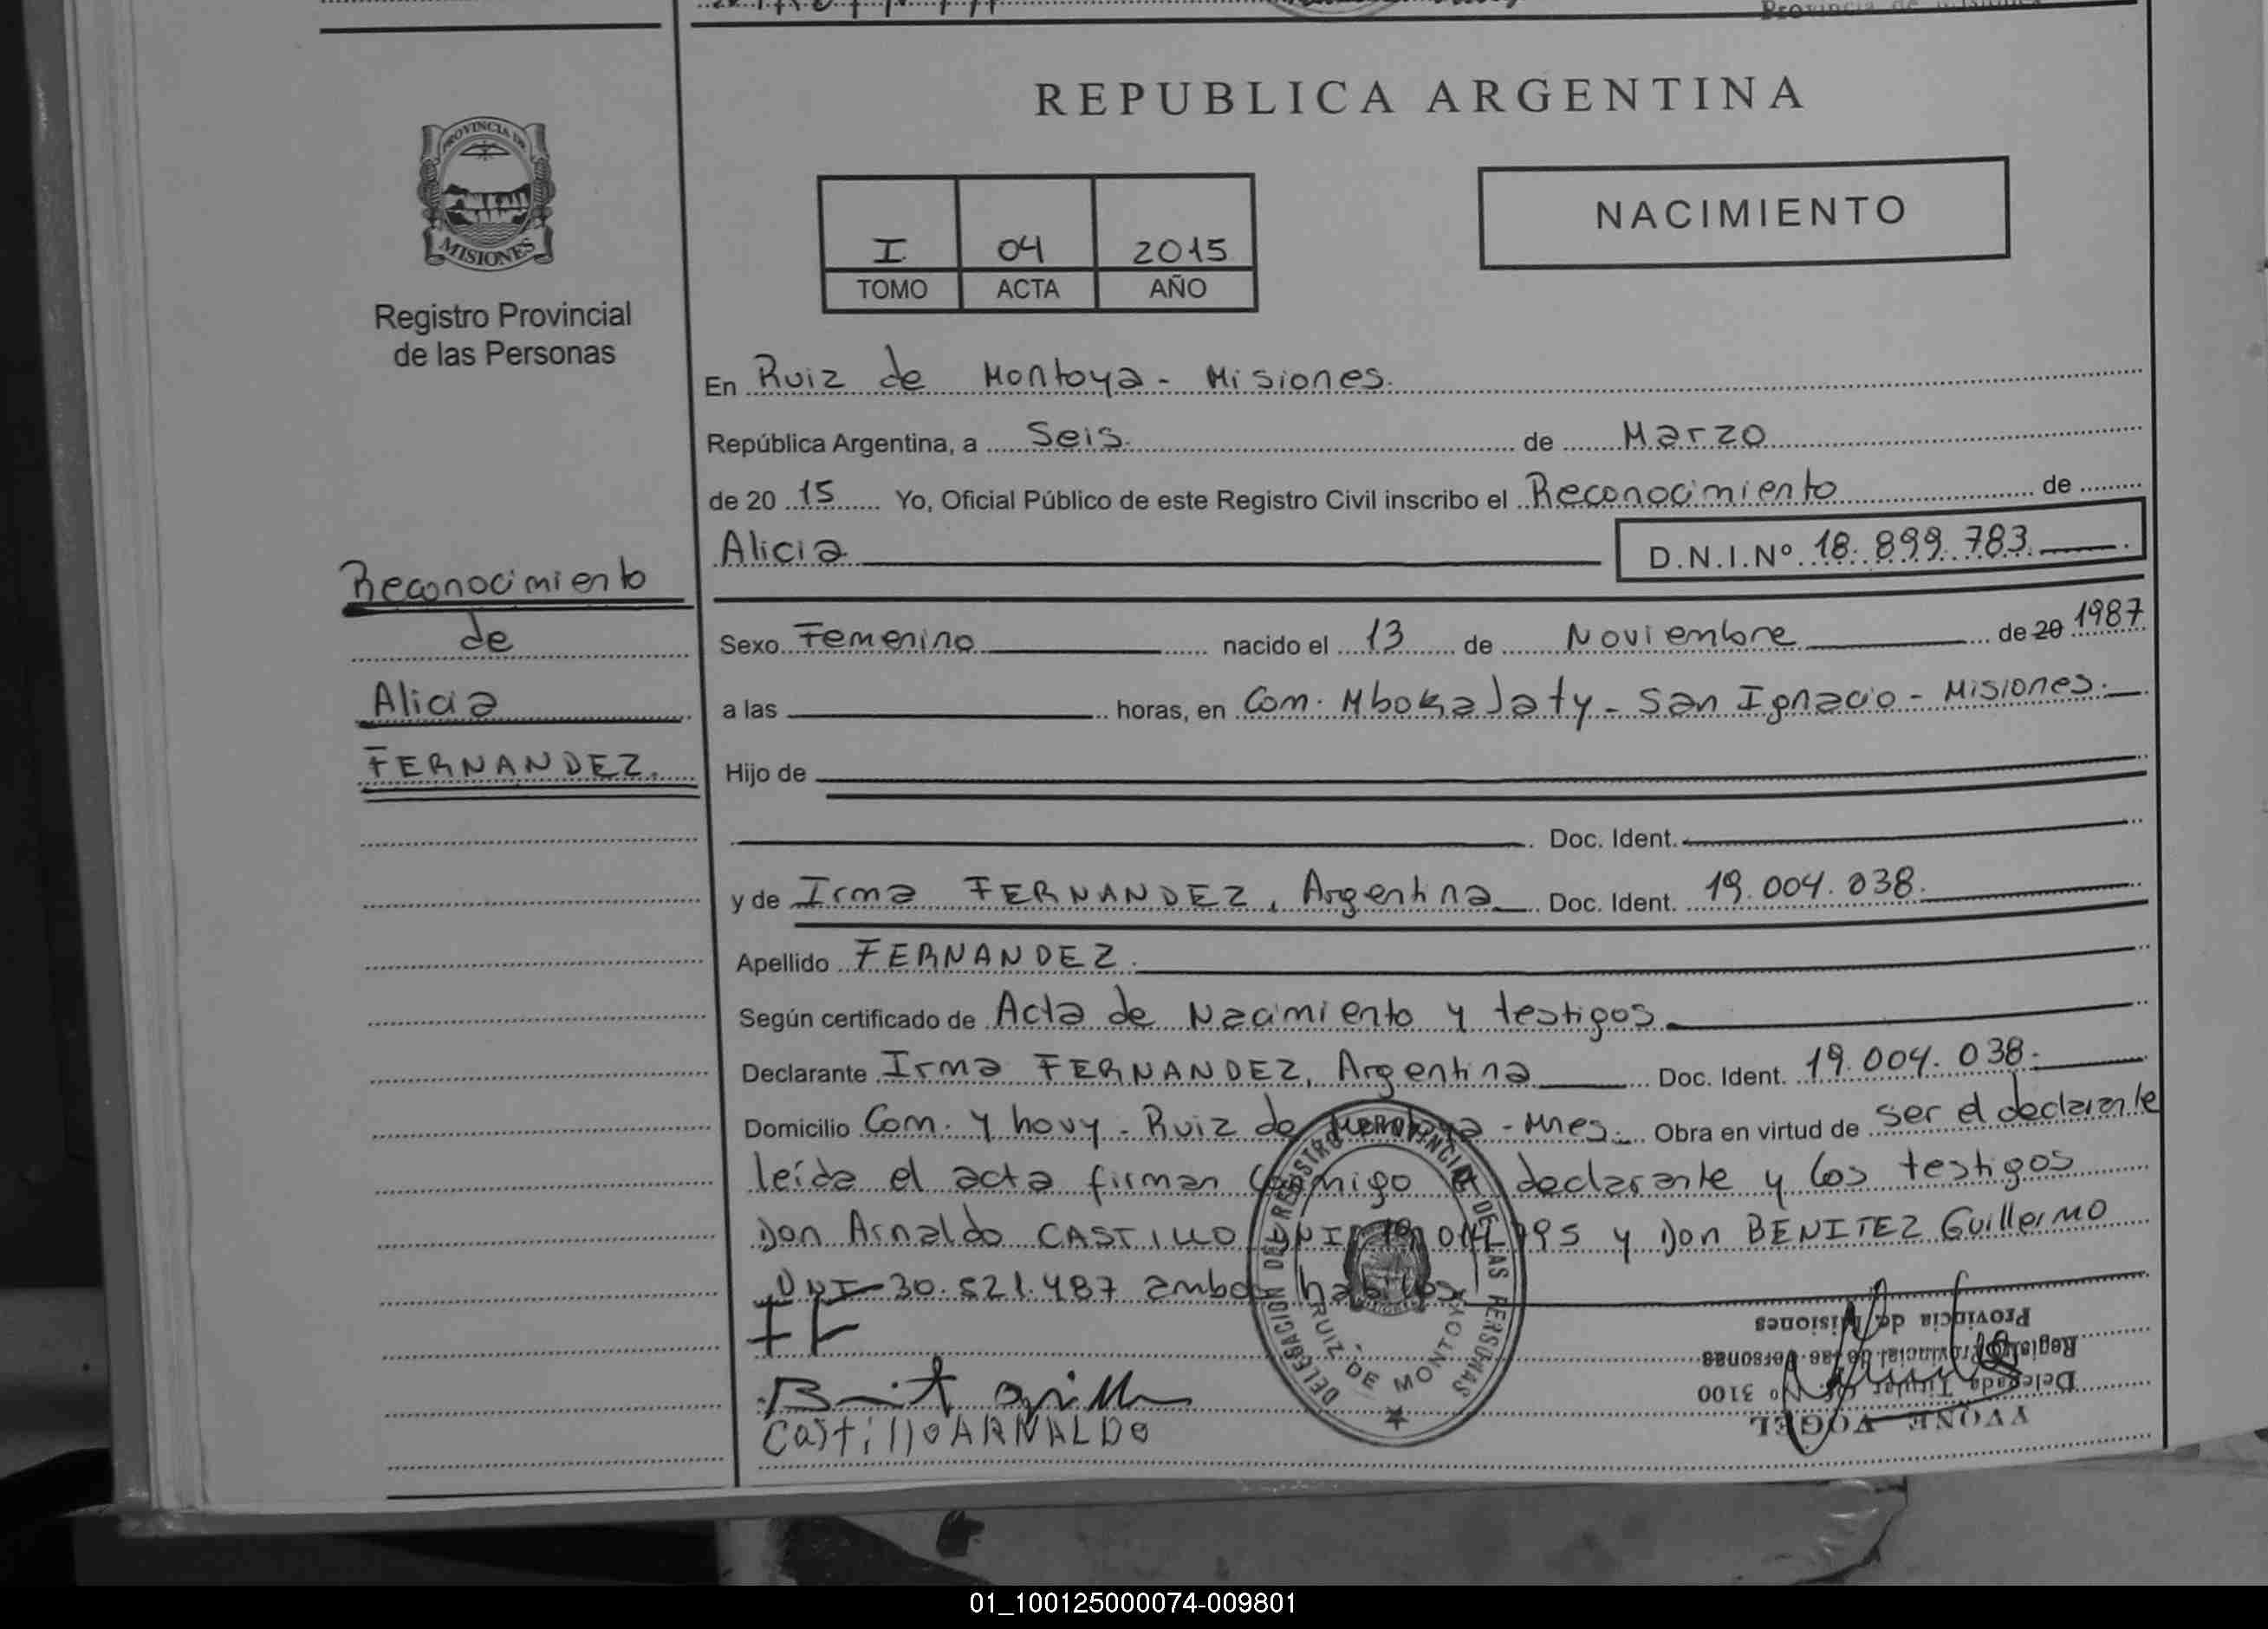 REPUBLICA ARGENTINA
PROVINCIA DE
MISIONES
Registro Provincial
de las Personas
I 04 2015
TOMO ACTA AÑO
NACIMIENTO
En Ruiz de Montoya - Misiones.
República Argentina, a Seis. de Marzo
de 20 15 Yo, Oficial Público de este Registro Civil inscribo el Reconocimiento de
Alicia D.N.I.Nº 18.899.783.
Reconocimiento
de
Alicia
FERNANDEZ.
Sexo Femenino nacido el 13 de Noviembre de 20 1987
a las horas, en Com. MbokaJaty - San Ignacio - Misiones.
Hijo de
Doc. Ident.
y de Irma FERNANDEZ, Argentina Doc. Ident. 19.004.038.
Apellido FERNANDEZ.
Según certificado de Acta de Nacimiento y testigos
Declarante Irma FERNANDEZ, Argentina Doc. Ident. 19.004.038.
Domicilio Com. Y hovy - Ruiz de Montoya - Mnes. Obra en virtud de ser el declarante
leída el acta firman conmigo el declarante y los testigos
Don Arnaldo CASTILLO DNI y Don BENITEZ Guillermo
DNI 30.521.487 ambos habiles
FF
Castillo ARNALDO
DELEGACION DEL REGISTRO PROVINCIAL DE LAS PERSONAS
RUIZ DE MONTOYA
YVONE VOGEL
Delegada Titular Of. Nº 3100
Registro Provincial de las Personas
Provincia de Misiones
01_100125000074-009801